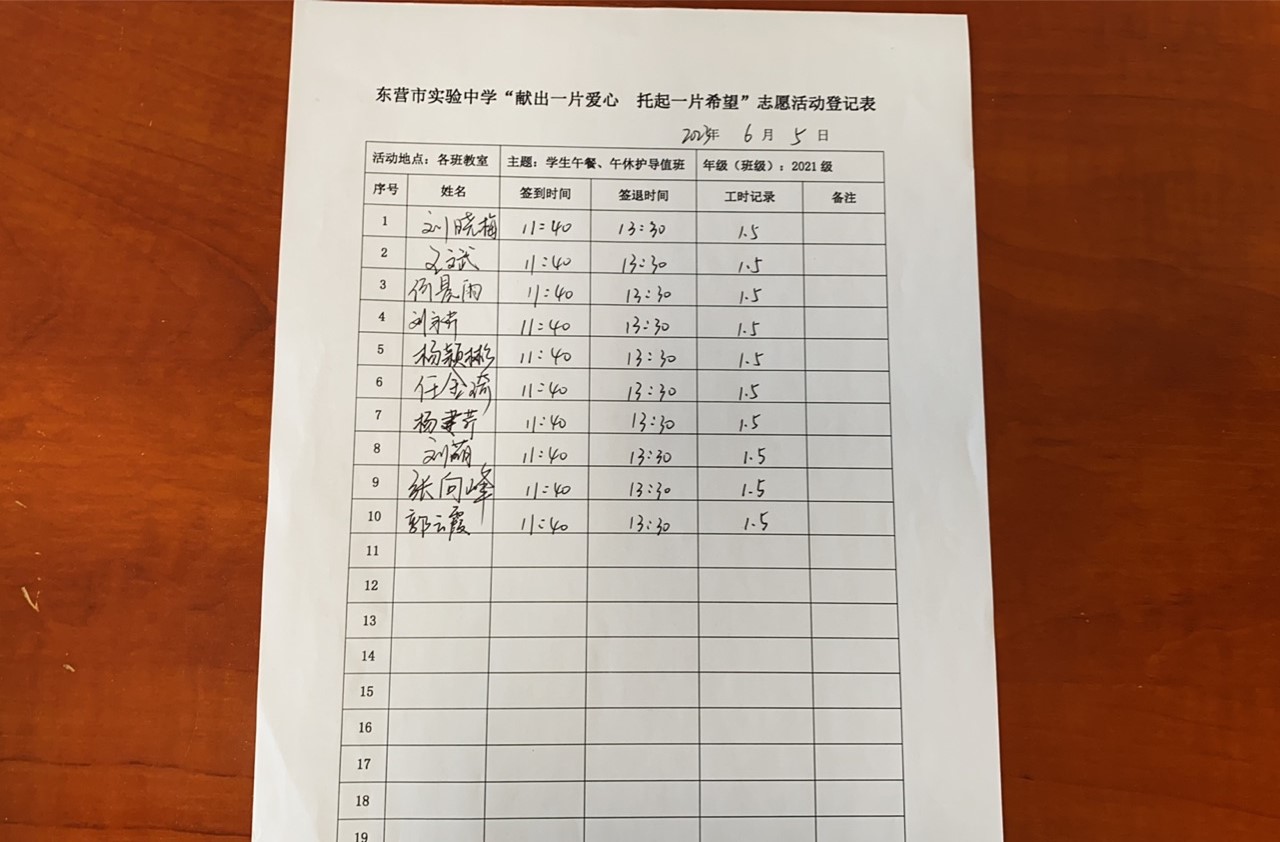 东营市实验中学“献出一片爱心 托起一片希望”志愿活动登记表
2023年 6 月 5 日
活动地点：各班教室 主题：学生午餐、午休护导值班 年级（班级）：2021 级
序号 姓名 签到时间 签退时间 工时记录 备注
1 刘晓梅 11:40 13:30 1.5
2 王文武 11:40 13:30 1.5
3 11:40 13:30 1.5
4 刘 11:40 13:30 1.5
5 杨颖彬 11:40 13:30 1.5
6 任金琦 11:40 13:30 1.5
7 杨 11:40 13:30 1.5
8 刘萌 11:40 13:30 1.5
9 张向峰 11:40 13:30 1.5
10 郭云霞 11:40 13:30 1.5
11
12
13
14
15
16
17
18
19